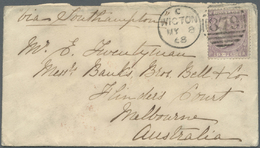 via Southampton
WIGTON
MY 8
68
379
Mr. E. Twentyman
Messrs Banks, Bros, Bell & Co
Flinders Court
Melbourne
Australia